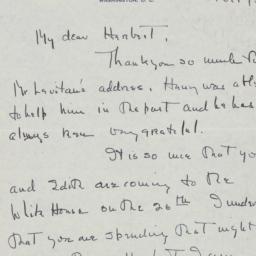 WASHINGTON, D.C.
My dear Herbert,
Thank you so much
Mr Levitan's address. Harry was
to help him in the past and he has
always been very grateful.
It is so nice that
and Edith are coming to the
White House on the 26th I
that you are spending that night